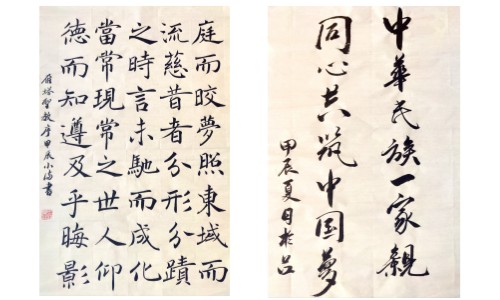 庭而皎夢照東域而
流慈昔者分形分蹟
之時言未馳而成化
當常現常之世人仰
德而知遵及乎晦影
雁塔聖教序甲辰小 書
中華民族一家親
同心共筑中国夢
甲辰夏日於吕